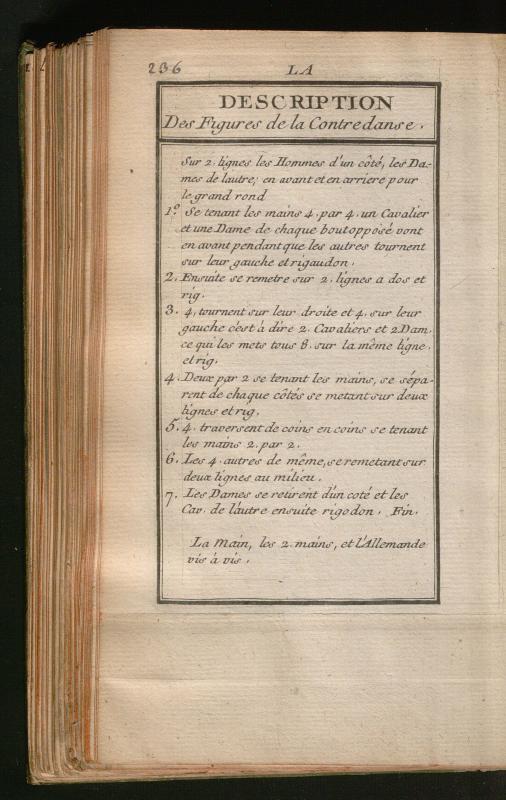 236 LA
DESCRIPTION
Des Figures de la Contredanse.
Sur 2. lignes les Hommes d'un côté, les Da-
mes de l'autre; en avant et en arriere pour
le grand rond
1.º Se tenant les mains 4. par 4. un Cavalier
et une Dame de chaque bout opposé vont
en avant pendant que les autres tournent
sur leur gauche et rigaudon.
2. Ensuite se remetre sur 2. lignes a dos et
rig.
3. 4. tournent sur leur droite et 4. sur leur
gauche c'est à dire 2. Cavaliers et 2 Dam.
ce qui les mets tous 8. sur la même ligne.
et rig.
4. Deux par 2 se tenant les mains, se sépa-
rent de chaque côtés se metant sur deux
lignes et rig.
5. 4. traversent de coins en coins se tenant
les mains 2. par 2.
6. Les 4. autres de même, se remetant sur
deux lignes au milieu.
7. Les Dames se retirent d'un coté et les
Cav. de l'autre ensuite rigodon. Fin.
La Main, les 2. mains, et l'Allemande
vis à vis.